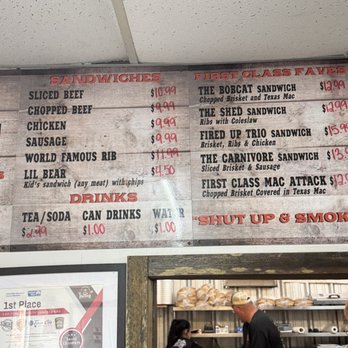 SANDWICHES
SLICED BEEF $10.99
CHOPPED BEEF $9.99
CHICKEN $9.99
SAUSAGE $9.99
WORLD FAMOUS RIB $11.99
LIL BEAR $4.50
Kid's sandwich (any meat) with chips
DRINKS
TEA/SODA CAN DRINKS WATER
$2.99 $1.00 $1.00
FIRST CLASS FAVES
THE BOBCAT SANDWICH $12.99
Chopped Brisket and Texas Mac
THE SHED SANDWICH $12.99
Ribs with Coleslaw
FIRED UP TRIO SANDWICH
Brisket, Ribs & Chicken
THE CARNIVORE SANDWICH
Sliced Brisket & Sausage
FIRST CLASS MAC ATTACK
Chopped Brisket Covered in Texas Mac
"SHUT UP & SMOK
1st Place